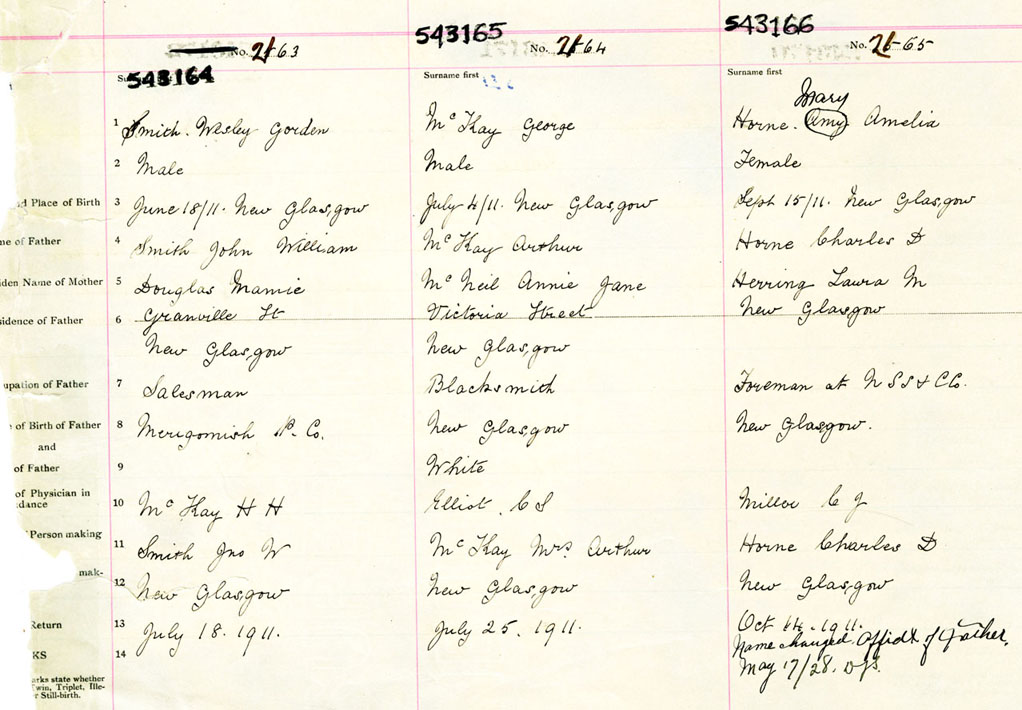 543165
543166
No. 2163
No. 2164
No. 2165
543164
Surname first
Surname first
Mary
1 Smith. Wesley Gorden
McKay George
Horne. Amy Amelia
2 Male
Male
Female
d Place of Birth 3 June 18/11. New Glasgow
July 4/11. New Glasgow
Sept 15/11. New Glasgow
me of Father 4 Smith John William
McKay Arthur
Horne Charles D
iden Name of Mother 5 Douglas Mamie
McNeil Annie Jane
Herring Laura M
sidence of Father 6 Granville St
Victoria Street
New Glasgow
New Glasgow
New Glasgow
upation of Father 7 Salesman
Blacksmith
Foreman at N S S & C Co.
of Birth of Father 8 Merigomish P. Co.
New Glasgow
New Glasgow.
and
of Father 9
White
of Physician in
dance 10 McKay H H
Elliot. C S
Miller C J
Person making
11 Smith Jno W
McKay Mrs Arthur
Horne Charles D
mak-
12 New Glasgow
New Glasgow
New Glasgow
Return 13 July 18. 1911.
July 25. 1911.
Oct 14. 1911.
KS 14
Name changed. Affidt of Father.
May 17/28.
arks state whether
Twin, Triplet, Ille-
r Still-birth.